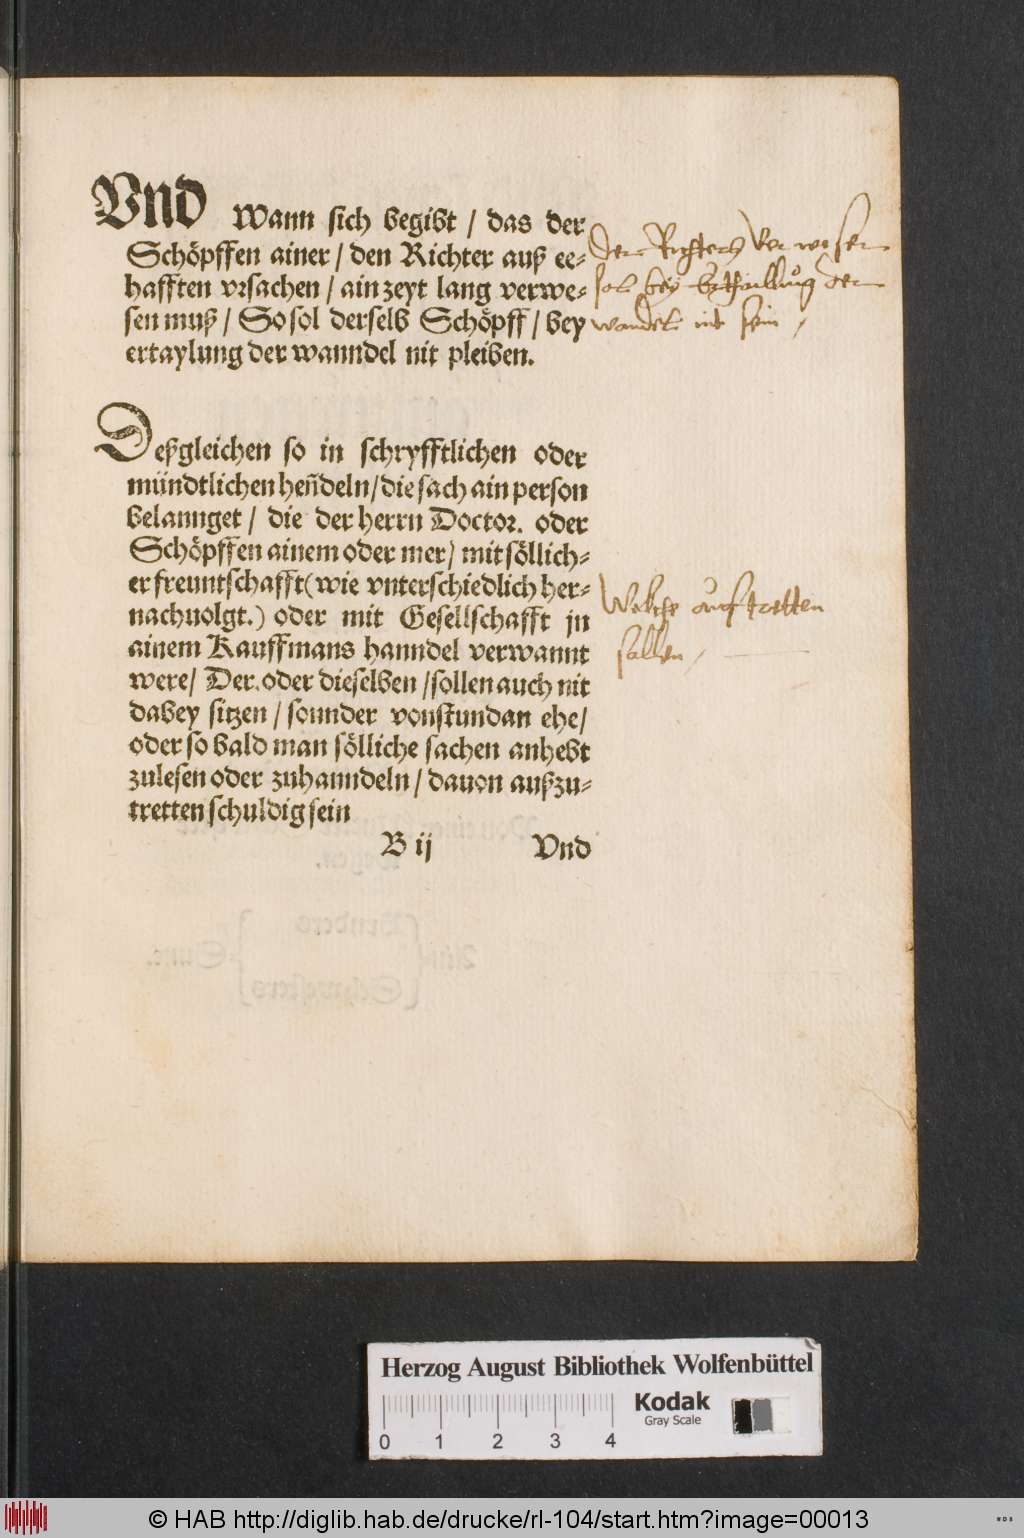 Vnd wann sich begibt / das der
Schöpffen ainer / den Richter auß ee-
hafften vrsachen / ain zeyt lang verwe-
sen muß / So sol derselb Schöpff / bey
ertaylung der wanndel nit pleiben.
der Richters verweser
sol bey Ertheillung der
wandel nit sein /
Deßgleichen so in schryfftlichen oder
mündtlichen hen̄deln / die sach ain person
belannget / die der herrn Doctor. oder
Schöpffen ainem oder mer / mit söllich-
er freuntschafft (wie vnterschiedlich her-
nachuolgt.) oder mit Gesellschafft jn
ainem Kauffmans hanndel verwannt
were / Der. oder dieselben / sollen auch nit
dabey sitzen / sonnder vonstundan ehe /
oder so bald man sölliche sachen anhebt
zulesen oder zuhanndeln / dauon außzu-
tretten schuldig sein
Welche aufstretten
sollen /
B ij Vnd
Herzog August Bibliothek Wolfenbüttel
Kodak
Gray Scale
0 1 2 3 4
© HAB http://diglib.hab.de/drucke/rl-104/start.htm?image=00013